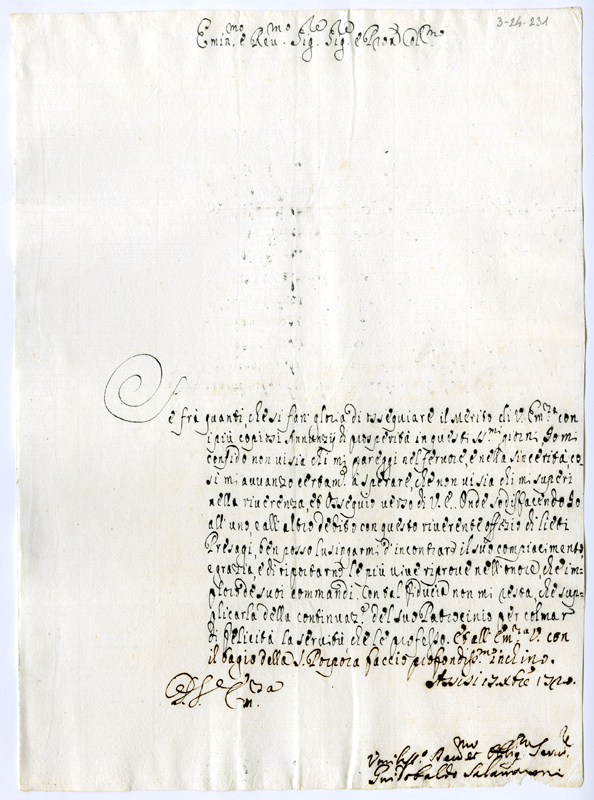 3-24-231
Emin.mo e Rev.mo Sig.re Sig.re e Pron Col.mo
Se frà quanti, che si fan' gloria di ossequiare il Merito di V. Em.za con
i più copiosi Annunzij di prosperità in questi SS.mi giorni Io mi
confido non vi sia chi mi pareggi nel fervore, e nella sincerità, co-
sì mi avvanzo certam.e à sperare, che non vi sia chi mi superi
nella riverenza, et Ossequio verso di V. E. Onde sodisfacendo Io
all'uno, e all'altro debito con questo riverente offizio di lieti
Presaggi, ben posso lusingarmi d'incontrare il suo compiacimento
e grazia, e di riportarne le più vive riprove nell'onore, che im-
ploro de suoi commandi. Con tal fiducia non mi resta, che sup-
plicarla della continuaz.e del suo Patrocinio per colmar
di felicità la servitù che le professo. Et all' Em.za V. con
il bagio della S. Porpora faccio profondiss.mo inchino.
Assisi 17 Xbre 1720.
D. V. Em.za
Umiliss.o Dev.mo et Obblig.mo Serv.re
Guidobaldo